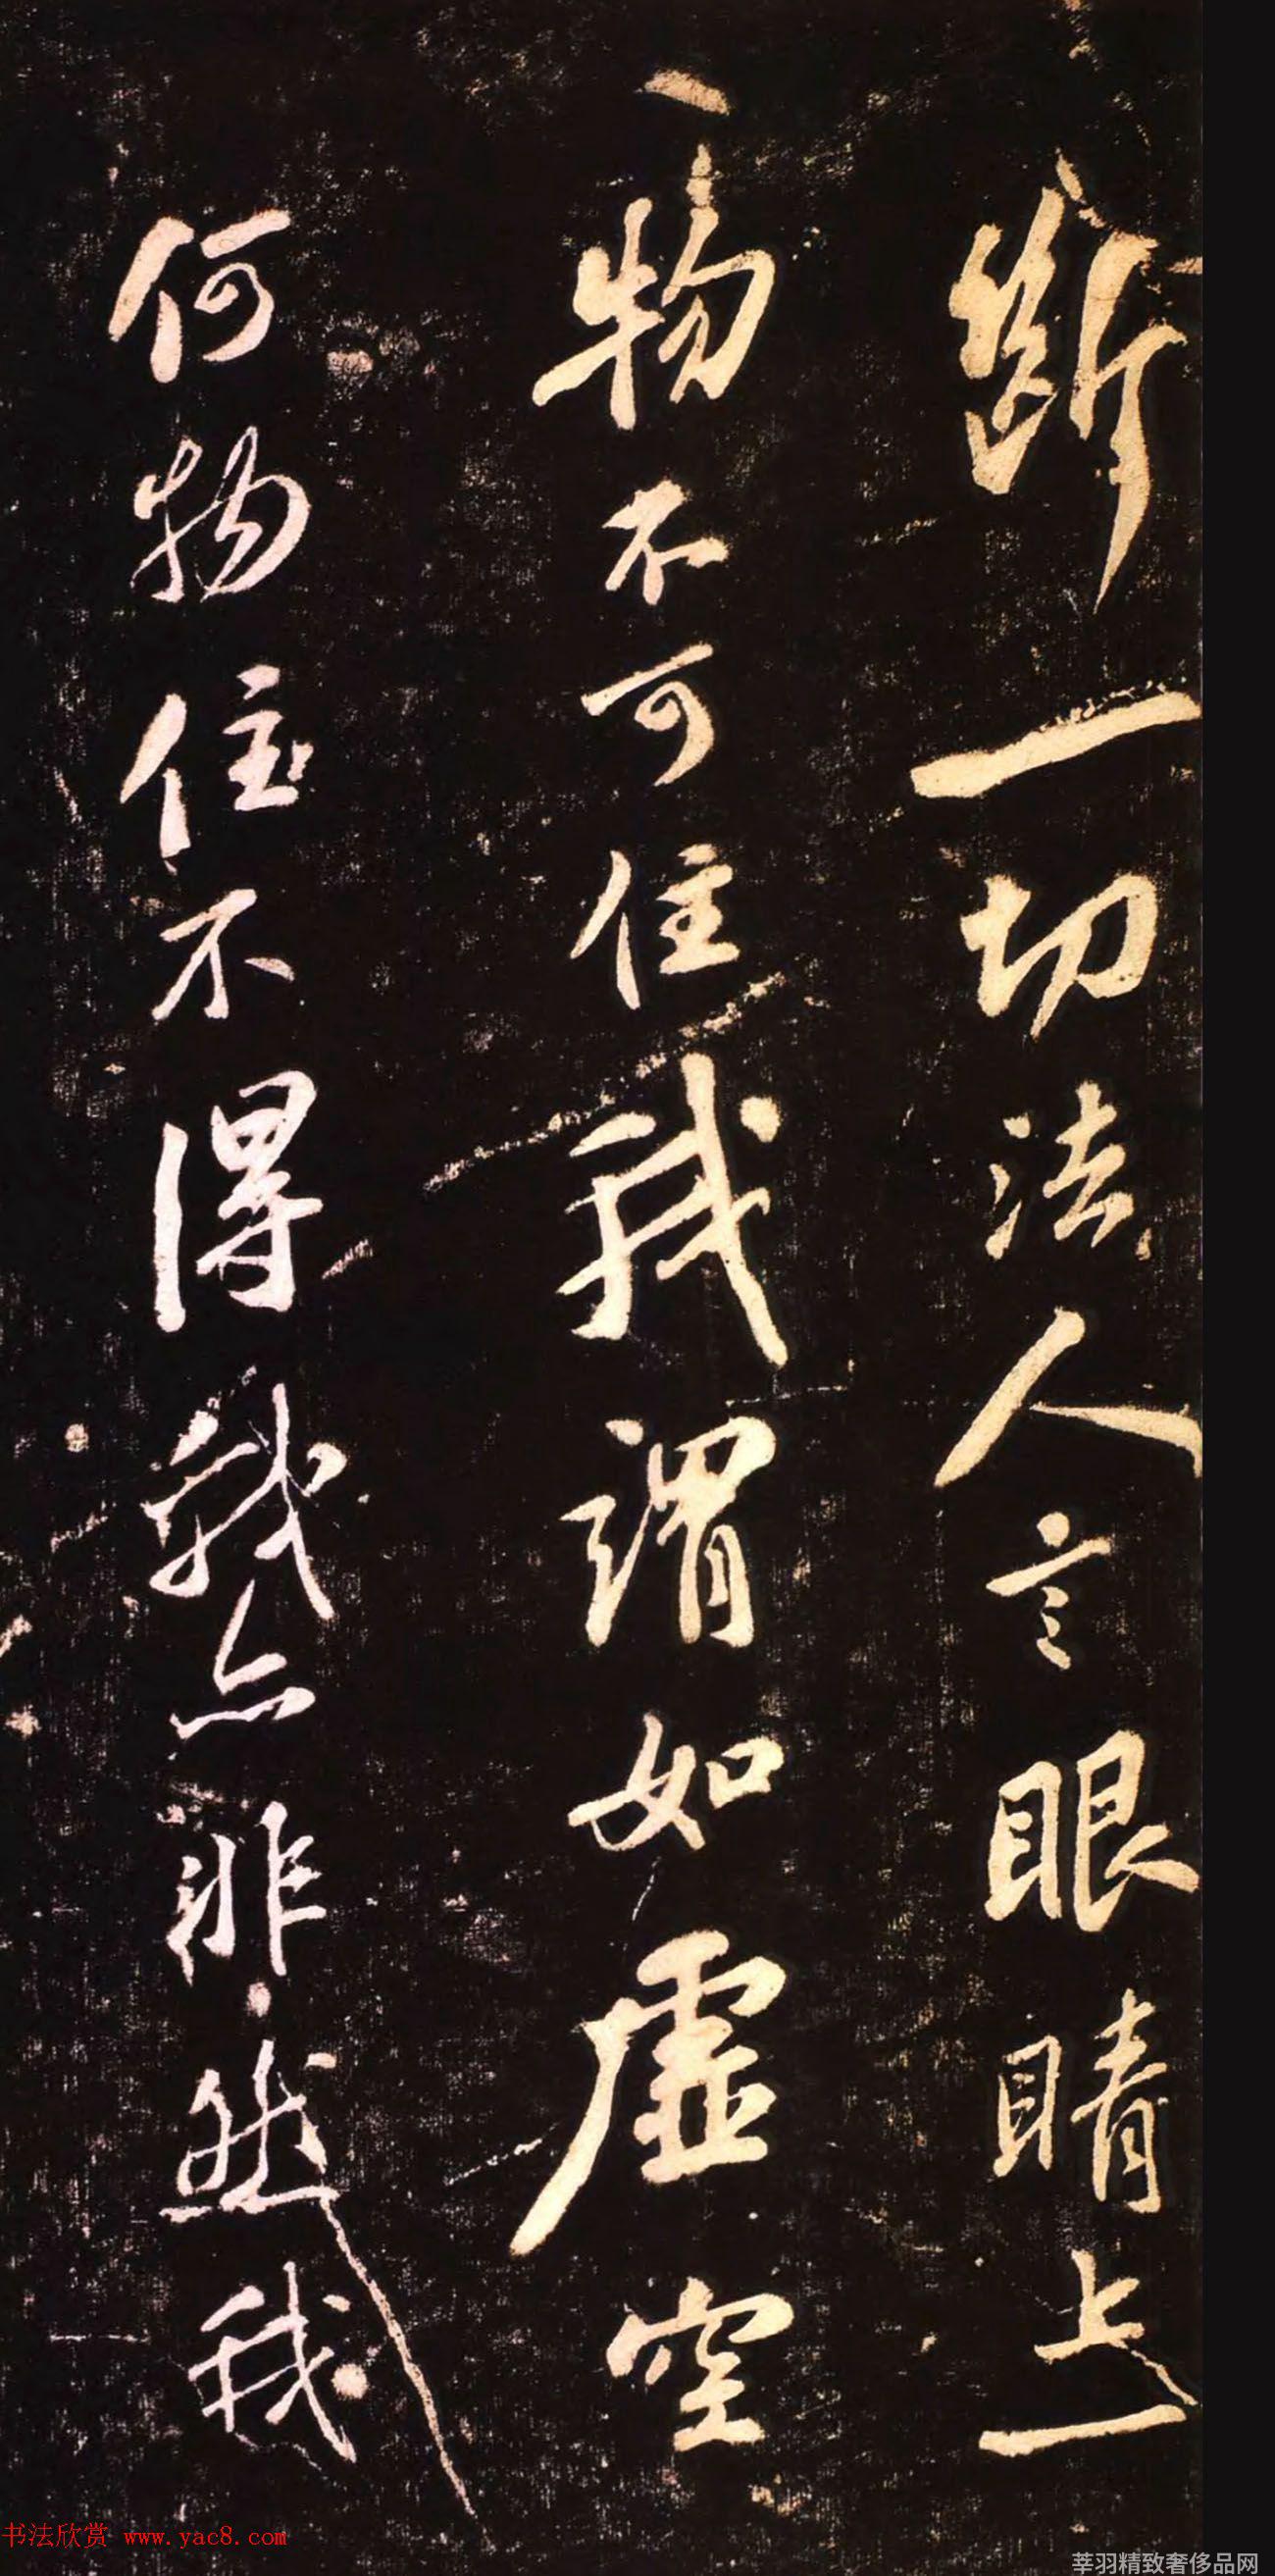 断一切法人言眼睛上一
物不可住我谓如虚空
何物住不得我亦非然我
书法欣赏 www.yac8.com
莘羽精致奢侈品网